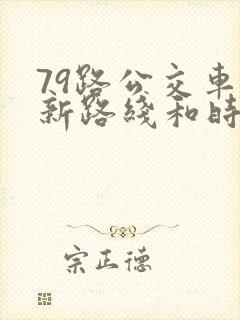 79路公交車
新路綫和時
宗正德